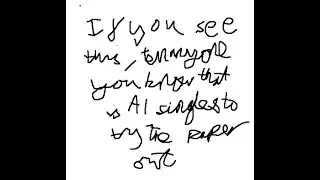 If you see
this,
you know that
is AI singles to
try the paper
out